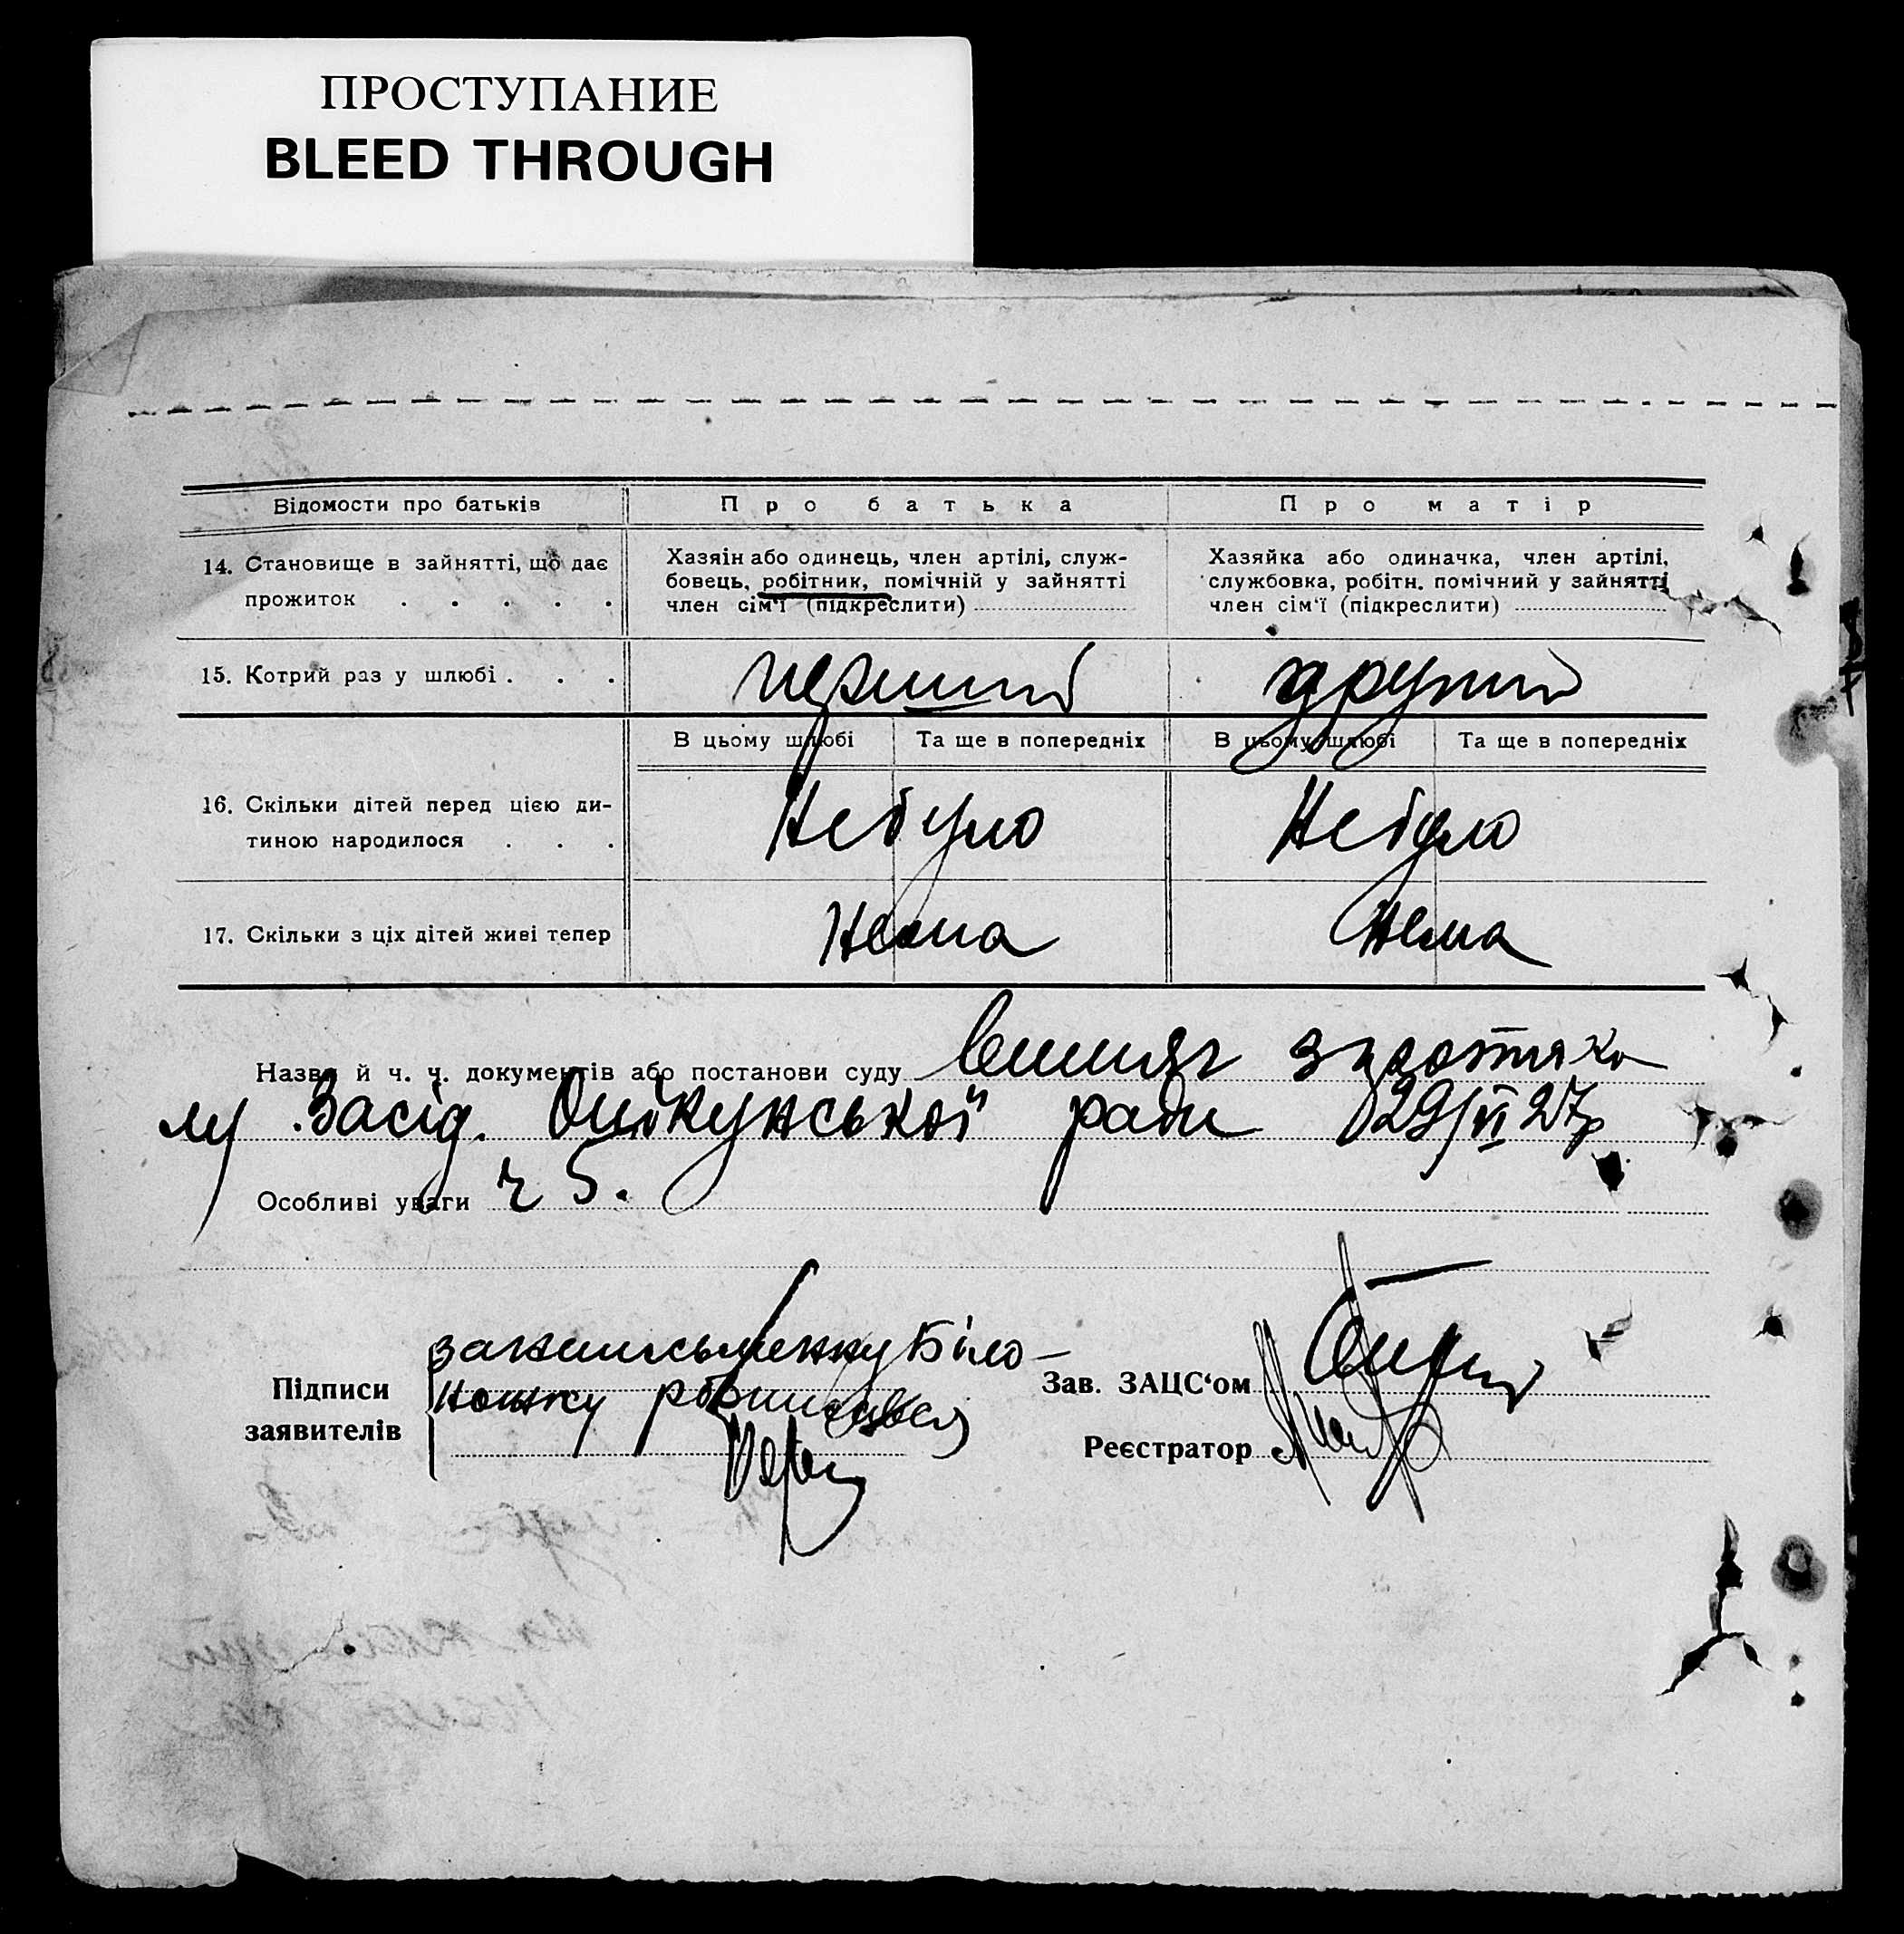 ПРОСТУПАНИЕ
BLEED THROUGH
Відомости про батьків
Про батька
Про матір
14. Становище в зайнятті, що дає
прожиток . . . . .
Хазяін або одинець, член артілі, служ-
бовець, робітник, помічній у зайнятті
член сім'ї (підкреслити)
Хазяйка або одиначка, член артілі,
службовка, робітн. помічний у зайнятті
член сім'ї (підкреслити)
15. Котрий раз у шлюбі . . .
перший
другий
В цьому шлюбі
Та ще в попередніх
В цьому шлюбі
Та ще в попередніх
16. Скільки дітей перед цією ди-
тиною народилося . . .
Небуло
Небуло
17. Скільки з ціх дітей живі тепер
Нема
Нема
Назва й ч. ч. документів або постанови суду витяг з протяко
лу Засід. Опікунської ради 29/VI 27р
Особливі уваги ч 5.
Підписи
заявителів
за неписьменну Біло-
ножку розписався
Зав. ЗАЦС'ом
Реєстратор